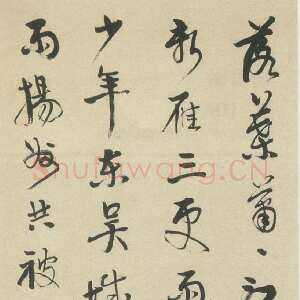 落葉蕭〻
新雁三更雨
少年东吴
雨揚州共被
shufawang.CN